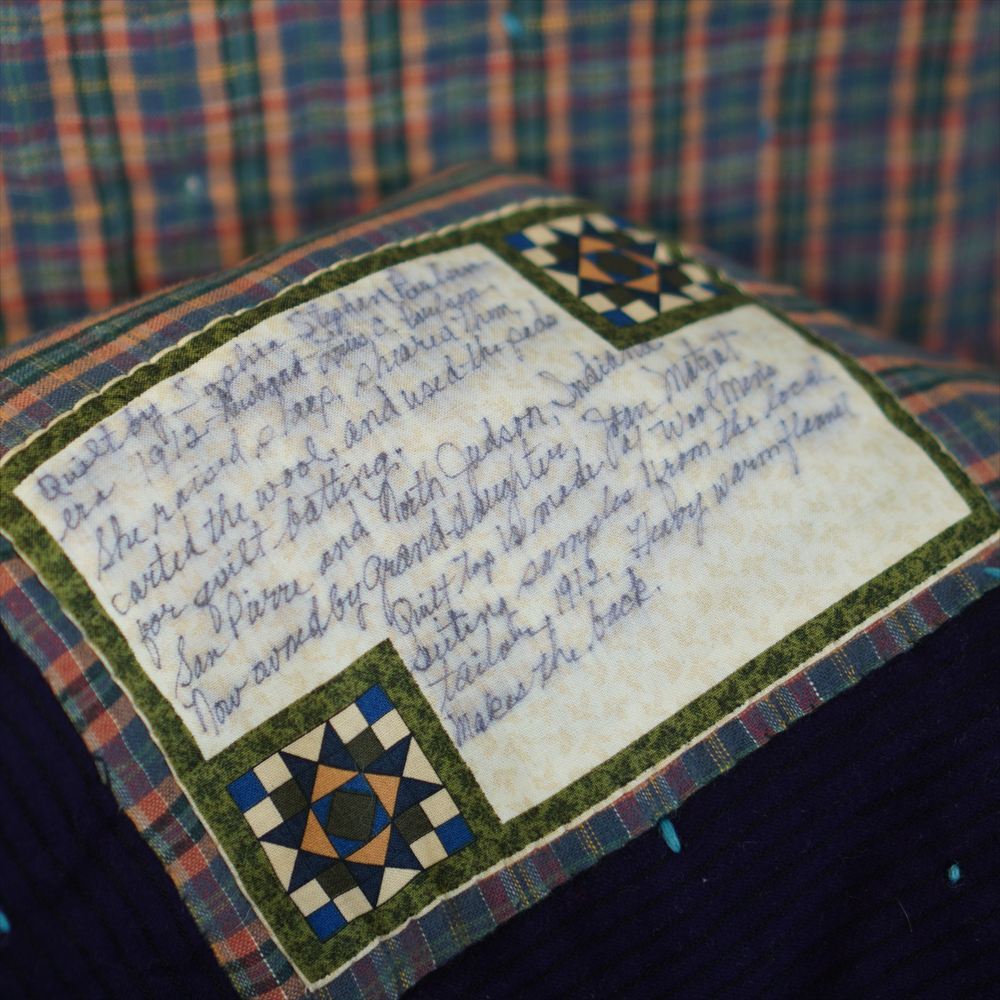 Quilt by - Sophia - Stephen
era 1912 - Husband
She raised sheep, sheared them,
carted the wool, and used the
for quilt batting.
San Pierre and North Judson, Indiana
Now owned by Granddaughter, Joan
Quilt top is made of Wool Mens
suiting samples from the local
tailor, 1912. Heavy warm flannel
makes the back.